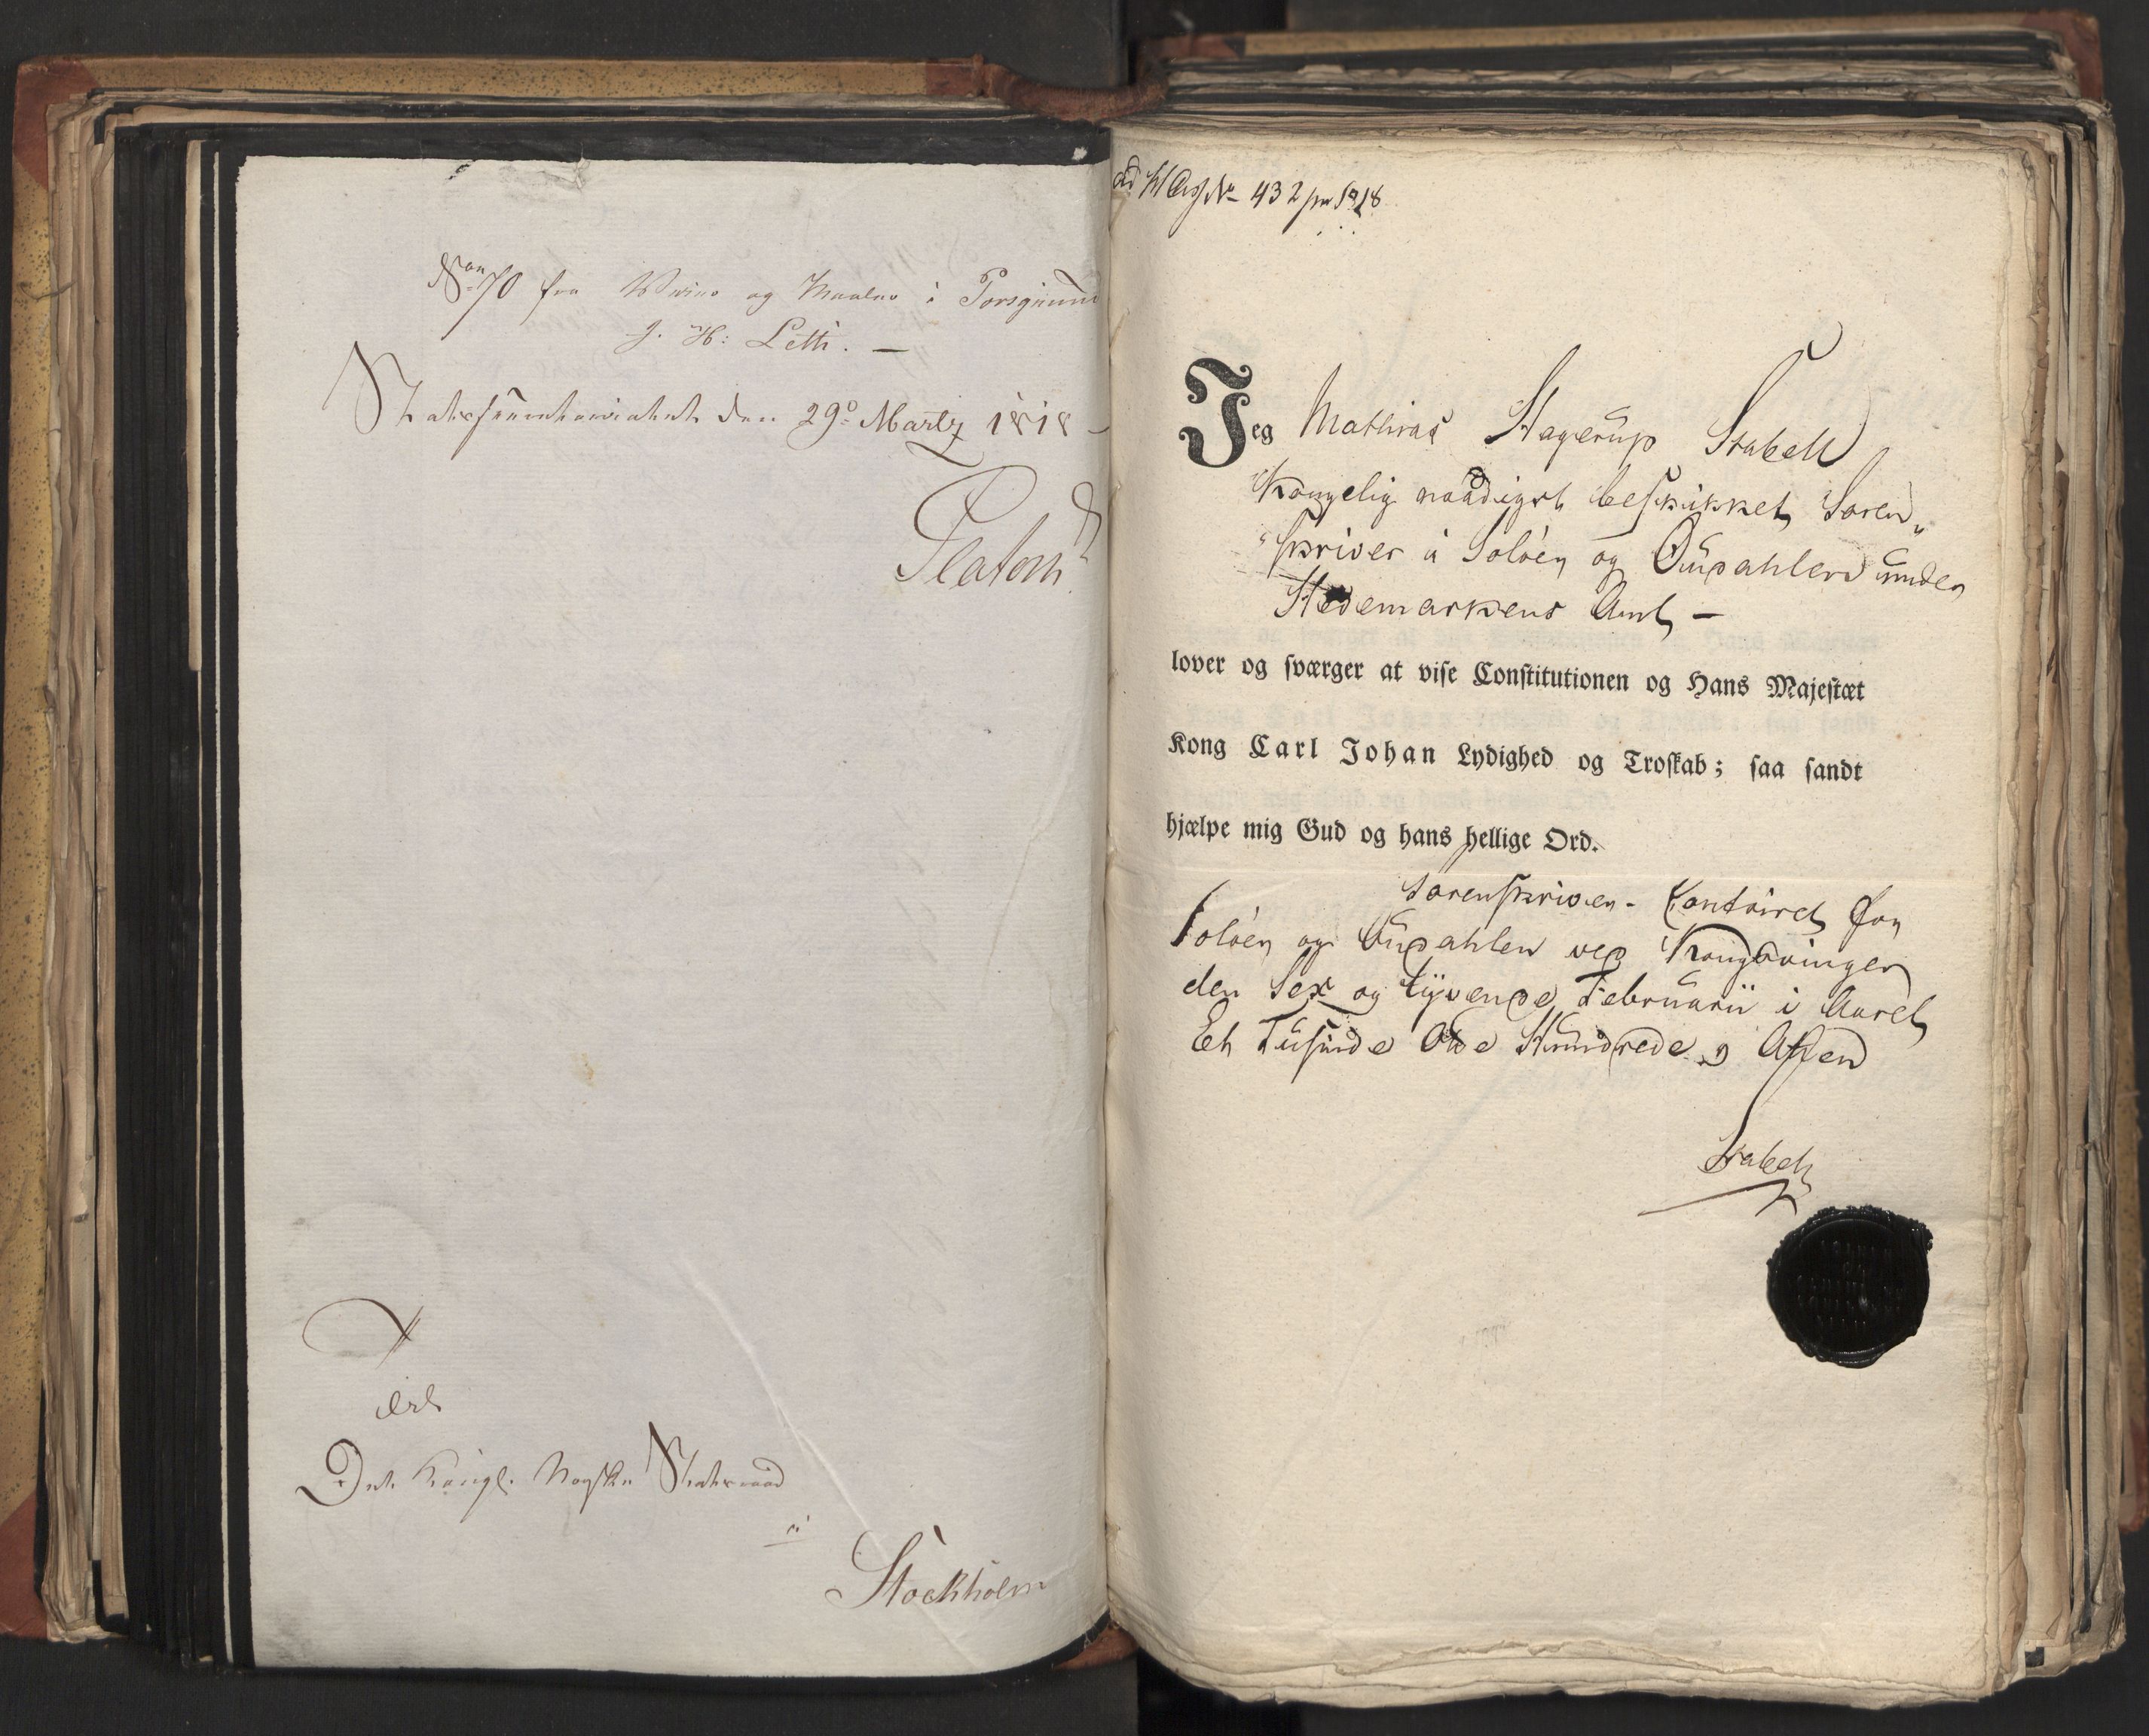 No 70 fra Veier og Maaler i Porsgrund
J. H: Leth. —
Statssecretariatet den 29de Martz 1818
Platou
Til
Det Kongl. Norske Statsraad
i
Stockholm
ad No 432 pro 1818
Jeg Mathias Hagerup Stabell
Kongelig naadigst beskikket Soren„
„skriver i Soløer og Oudahlen under
Hedemarkens Amt —
lover og sværger at vise Constitutionen og Hans Majestæt
Kong Carl Johan Lydighed og Troskab; saa sandt
hjælpe mig Gud og hans hellige Ord.
Sorenskriver-Contoiret for
Soløer og Oudahlen ved Kongsvinger
den Sex og tyvende Februarii i Aaret
Et Tusinde Otte Hundrede og Atten
Stabell